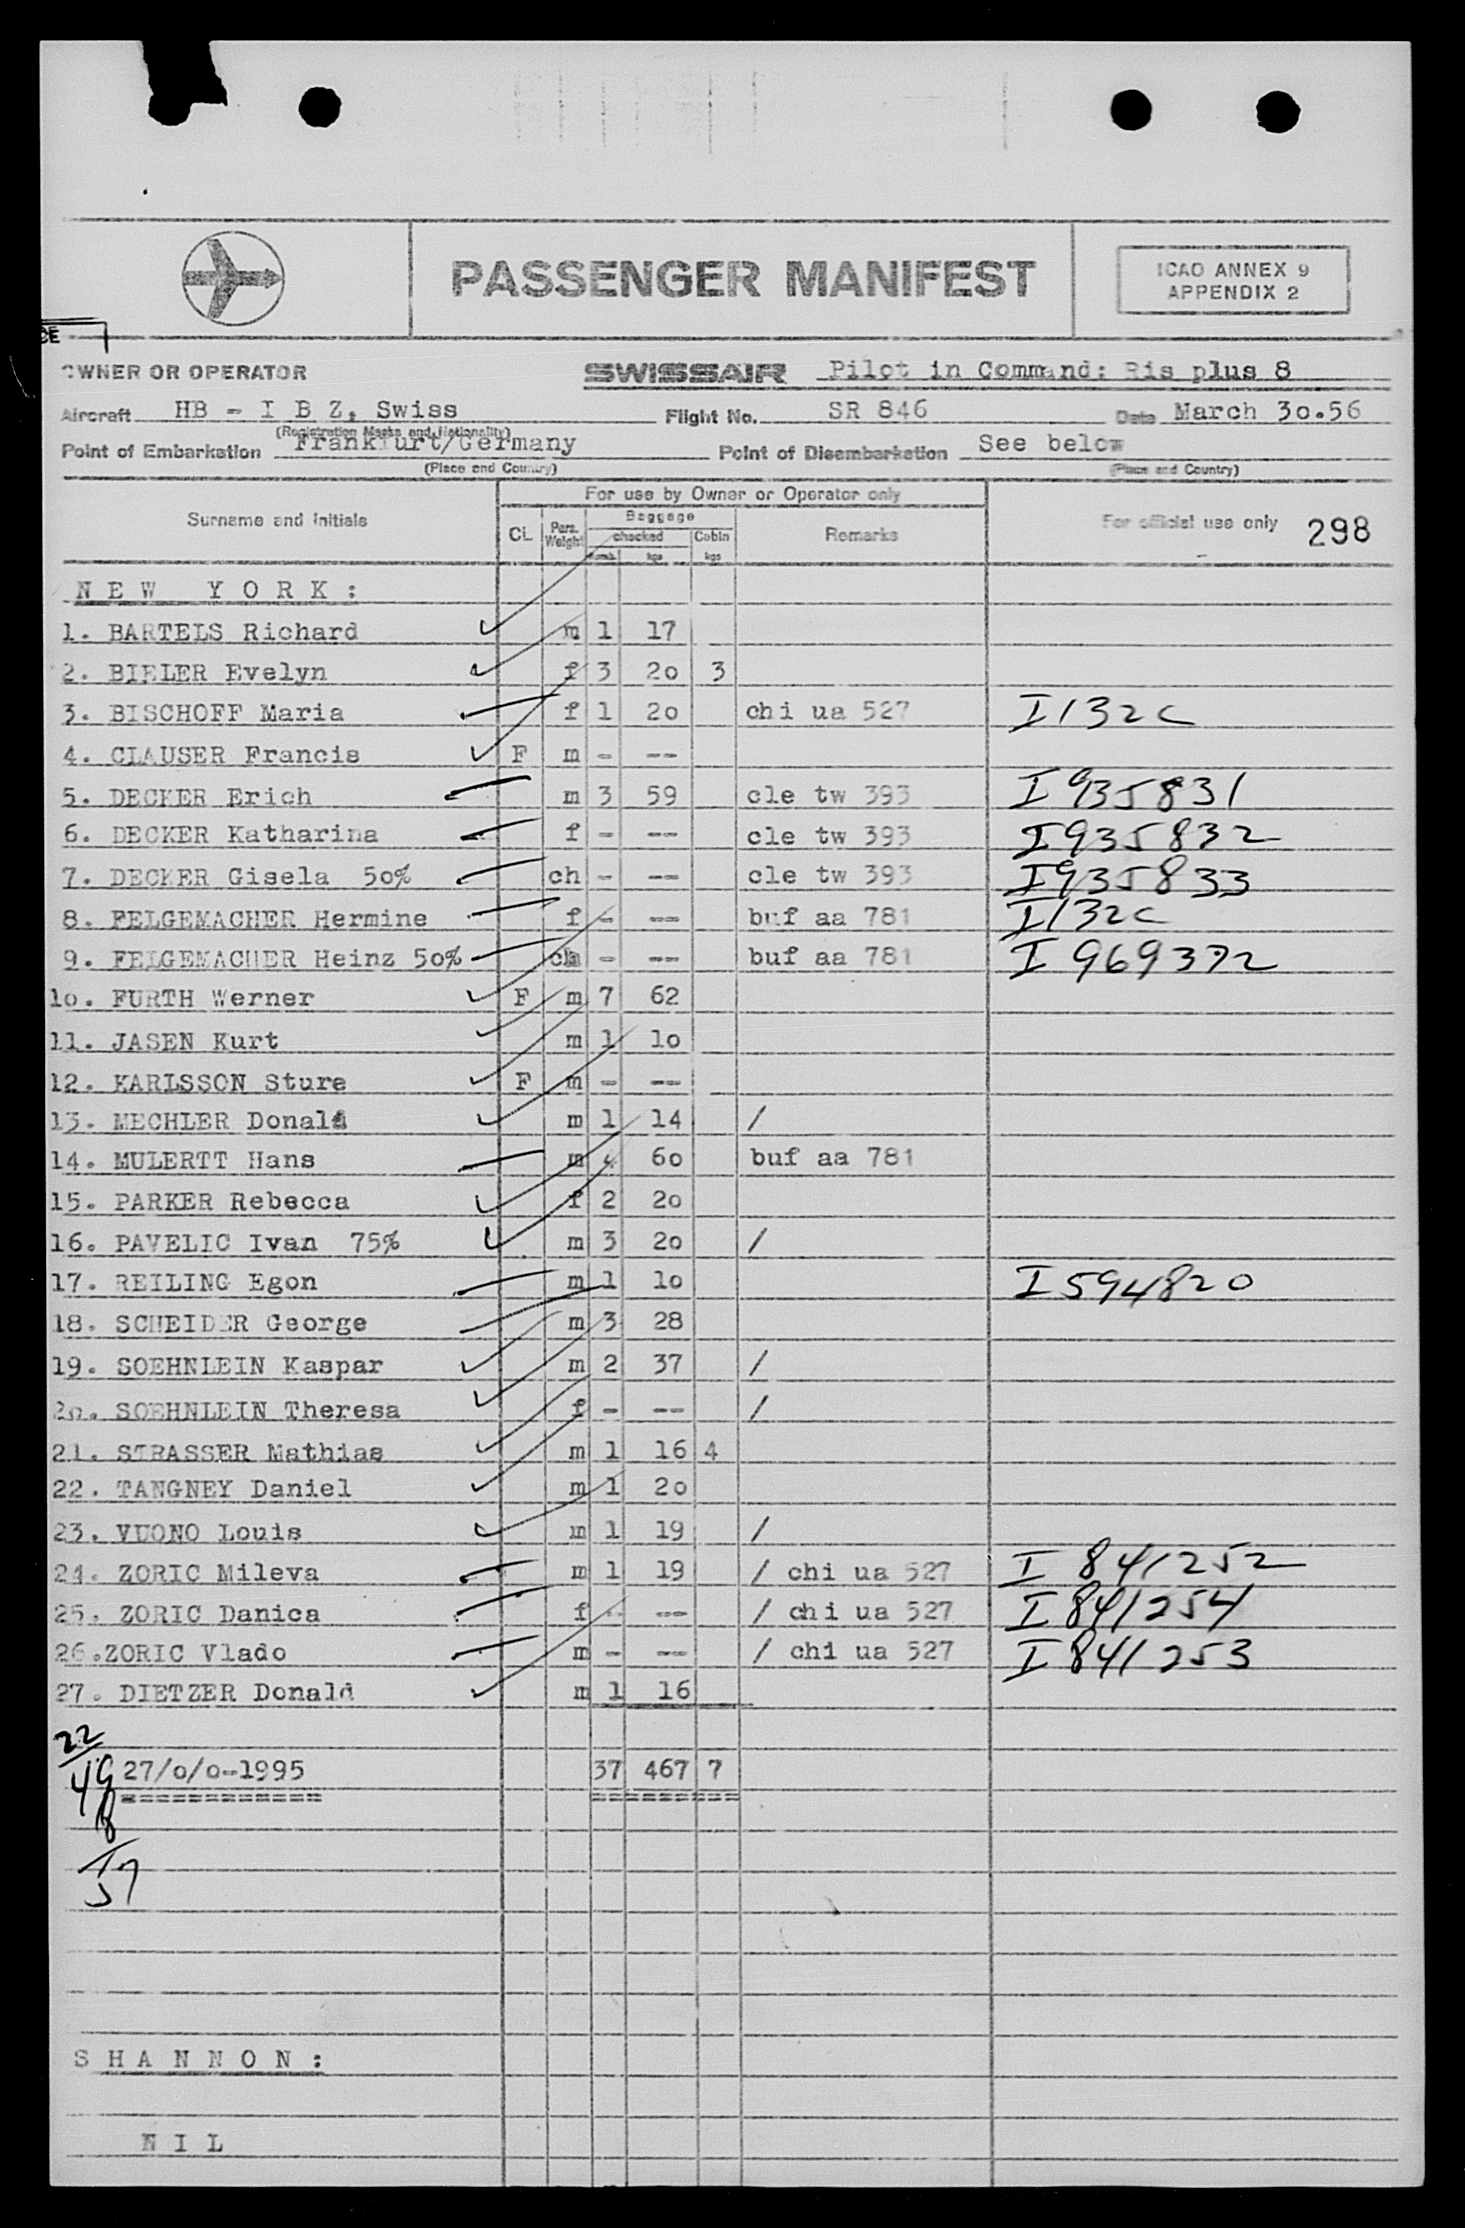 PASSENGER MANIFEST
ICAO ANNEX 9
APPENDIX 2
CE
OWNER OR OPERATOR SWISSAIR Pilot in Command: Ris plus 8
Aircraft HB - I B Z, Swiss Flight No. SR 846 Date March 3o.56
(Registration Marks and Nationality)
Point of Embarkation Frankfurt/Germany Point of Disembarkation See below
(Place and Country) (Place and Country)
For use by Owner or Operator only
Surname and initials CL Pers. Weight Baggage checked Numb. kgs Cabin kgs Remarks For official use only 298
N E W Y O R K :
1. BARTELS Richard m 1 17
2. BIELER Evelyn f 3 2o 3
3. BISCHOFF Maria f 1 2o chi ua 527 I 132c
4. CLAUSER Francis F m - --
5. DECKER Erich m 3 59 cle tw 393 I 935831
6. DECKER Katharina f - -- cle tw 393 I 935832
7. DECKER Gisela 5o% ch - -- cle tw 393 I 935833
8. FELGEMACHER Hermine f - -- buf aa 781 I 132c
9. FELGEMACHER Heinz 5o% ch - -- buf aa 781 I 969372
1o. FURTH Werner F m 7 62
11. JASEN Kurt m 1 1o
12. KARLSSON Sture F m - --
13. MECHLER Donald m 1 14 /
14. MULERTT Hans m 4 6o buf aa 781
15. PARKER Rebecca f 2 2o
16. PAVELIC Ivan 75% m 3 2o /
17. REILING Egon m 1 1o I 594820
18. SCHEIDER George m 3 28
19. SOEHNLEIN Kaspar m 2 37 /
2o. SOEHNLEIN Theresa f - -- /
21. STRASSER Mathias m 1 16 4
22. TANGNEY Daniel m 1 2o
23. VUONO Louis m 1 19 /
24. ZORIC Mileva m 1 19 / chi ua 527 I 841252
25. ZORIC Danica f - -- / chi ua 527 I 841254
26.ZORIC Vlado m - -- / chi ua 527 I 841253
27. DIETZER Donald m 1 16
22
49 27/o/o--1995 37 467 7
8
57
S H A N N O N :
N I L